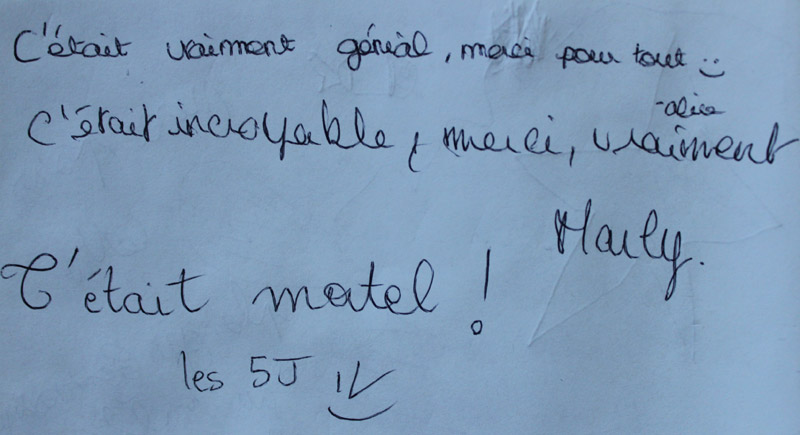 C'était vraiment génial, merci pour tout :)
-alice
C'était incroyable, merci, vraiment
Maily.
C'était matel !
les 5J